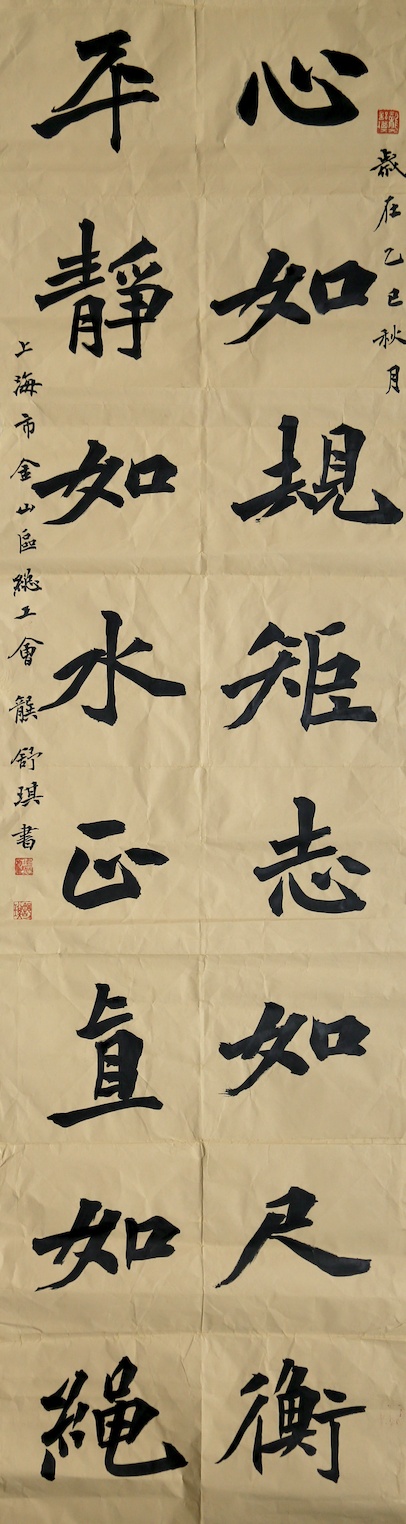 歲在乙巳秋月
心如規矩志如尺衡
平靜如水正直如繩
上海市金山區總工會 龔舒琪書